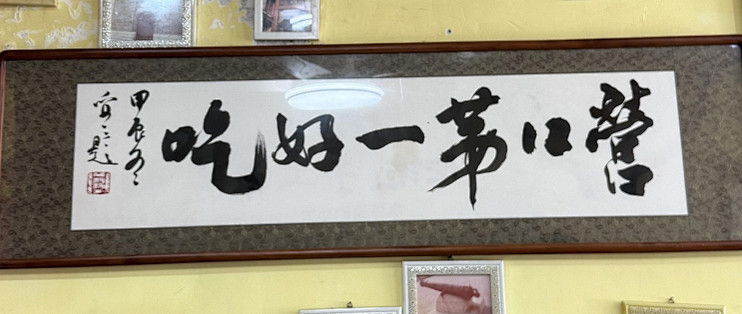 營口第一好吃
甲辰冬
題